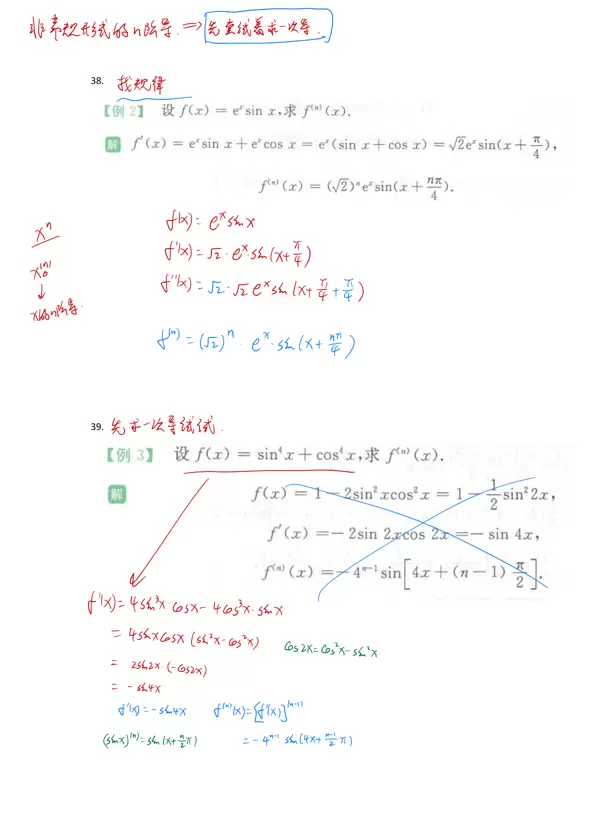 非常规形式的n阶导. ⇒ 先尝试着求一次导.
38. 找规律
【例2】 设 f(x) = eˣsin x,求 f⁽ⁿ⁾(x).
解 f′(x) = eˣsin x + eˣcos x = eˣ(sin x + cos x) = √2eˣsin(x + π/4),
f⁽ⁿ⁾(x) = (√2)ⁿeˣsin(x + nπ/4).
f(x) = eˣ sin x
xⁿ
f′(x) = √2 · eˣ · sin(x + π/4)
f″(x) = √2 · √2 eˣ sin(x + π/4 + π/4)
↓
x的n阶导.
f⁽ⁿ⁾ = (√2)ⁿ · eˣ · sin(x + nπ/4)
39. 先求一次导试试.
【例3】 设 f(x) = sin⁴x + cos⁴x,求 f⁽ⁿ⁾(x).
解 f(x) = 1 − 2sin²xcos²x = 1 − 1/2 sin²2x,
f′(x) = −2sin 2xcos 2x = −sin 4x,
f⁽ⁿ⁾(x) = −4ⁿ⁻¹sin[4x + (n−1) π/2].
f′(x) = 4sin³x cosx − 4cos³x · sinx
= 4sinxcosx (sin²x − cos²x) cos2x = cos²x − sin²x
= 2sin2x · (−cos2x)
= −sin4x
f′(x) = −sin4x f⁽ⁿ⁾(x) = [f′(x)]⁽ⁿ⁻¹⁾
(sinx)⁽ⁿ⁾ = sin(x + n/2 π) = −4ⁿ⁻¹ · sin(4x + n−1/2 π)